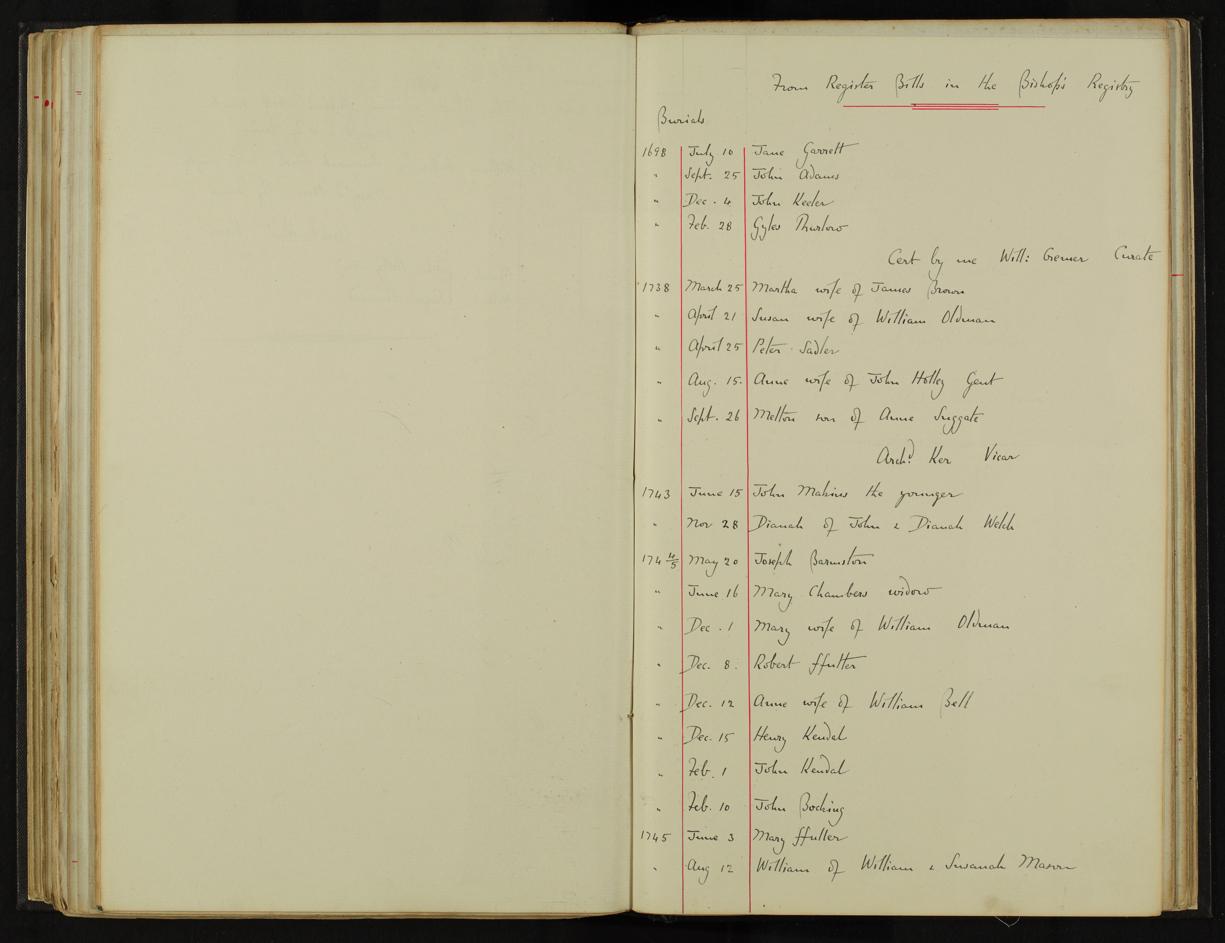 From Register Bills in the Bishop's Registry
Burials
1698 July 10 Jane Garrett
" Sept. 25 John Adams
" Dec. 4 John Keeler
" Feb. 28 Gyles Thurlow
Cert by me Will: Gremer Curate
1738 March 25 Martha wife of James Brown
" April 21 Susan wife of William Oldman
" April 25 Peter Sadler
" Aug. 15. Anne wife of John Holley Gent
" Sept. 26 Melton son of Anne Suggate
Archd Ker Vicar
1743 June 15 John Makins the younger
" Nov 28 Dianah of John & Dianah Welch
174 4/5 May 20 Joseph Barmston
" June 16 Mary Chambers widow
" Dec. 1 Mary wife of William Oldman
" Dec. 8. Robert ffuller
" Dec. 12 Anne wife of William Bell
" Dec. 15 Henry Kendal
" Feb. 1 John Kendal
" Feb. 10 John Bocking
1745 June 3 Mary ffuller
" Aug 12 William of William & Susanah Mason